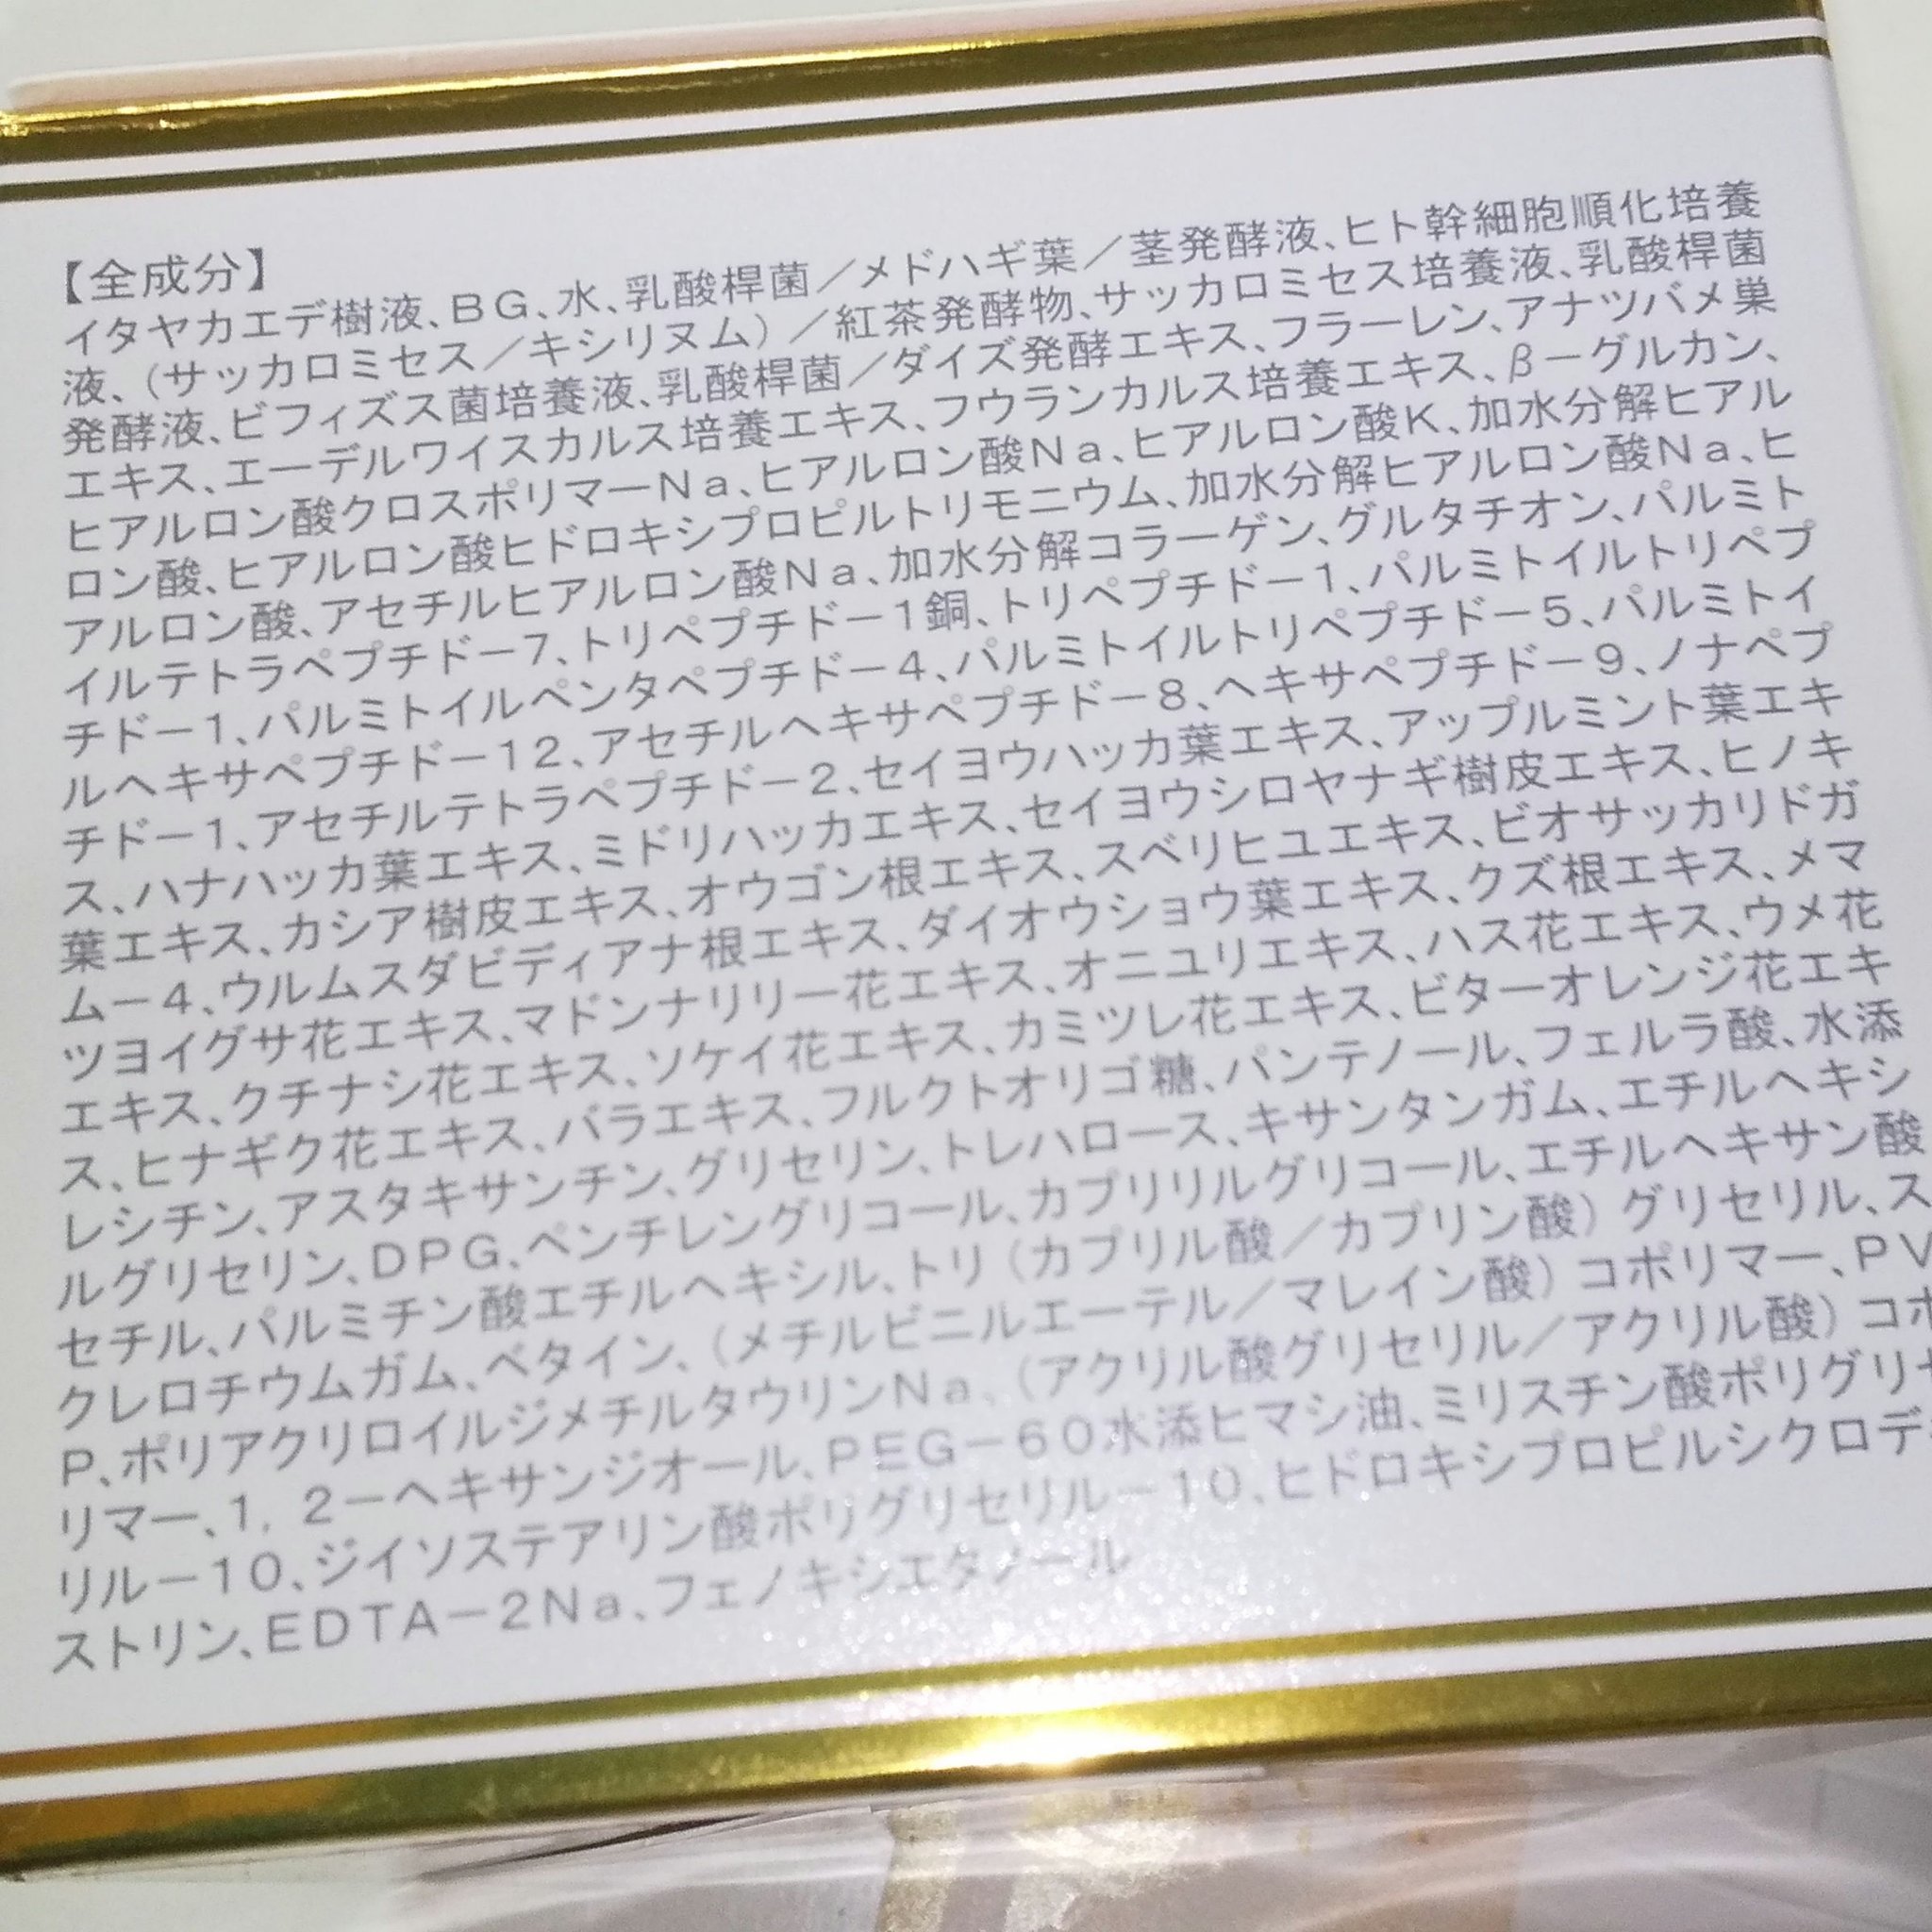 【全成分】
イタヤカエデ樹液、BG、水、乳酸桿菌／メドハギ葉／茎発酵液、ヒト幹細胞順化培養
液、(サッカロミセス／キシリヌム)／紅茶発酵物、サッカロミセス培養液、乳酸桿菌
発酵液、ビフィズス菌培養液、乳酸桿菌／ダイズ発酵エキス、フラーレン、アナツバメ巣
エキス、エーデルワイスカルス培養エキス、フウランカルス培養エキス、β－グルカン、
ヒアルロン酸クロスポリマーNa、ヒアルロン酸Na、ヒアルロン酸K、加水分解ヒアル
ロン酸、ヒアルロン酸ヒドロキシプロピルトリモニウム、加水分解ヒアルロン酸Na、ヒ
アルロン酸、アセチルヒアルロン酸Na、加水分解コラーゲン、グルタチオン、パルミト
イルテトラペプチド－7、トリペプチド－1銅、トリペプチド－1、パルミトイルトリペプ
チド－1、パルミトイルペンタペプチド－4、パルミトイルトリペプチド－5、パルミトイ
ルヘキサペプチド－12、アセチルヘキサペプチド－8、ヘキサペプチド－9、ノナペプ
チド－1、アセチルテトラペプチド－2、セイヨウハッカ葉エキス、アップルミント葉エキ
ス、ハナハッカ葉エキス、ミドリハッカエキス、セイヨウシロヤナギ樹皮エキス、ヒノキ
葉エキス、カシア樹皮エキス、オウゴン根エキス、スベリヒユエキス、ビオサッカリドガ
ム－4、ウルムスダビディアナ根エキス、ダイオウショウ葉エキス、クズ根エキス、メマ
ツヨイグサ花エキス、マドンナリリー花エキス、オニユリエキス、ハス花エキス、ウメ花
エキス、クチナシ花エキス、ソケイ花エキス、カミツレ花エキス、ビターオレンジ花エキ
ス、ヒナギク花エキス、バラエキス、フルクトオリゴ糖、パンテノール、フェルラ酸、水添
レシチン、アスタキサンチン、グリセリン、トレハロース、キサンタンガム、エチルヘキシ
ルグリセリン、DPG、ペンチレングリコール、カプリリルグリコール、エチルヘキサン酸
セチル、パルミチン酸エチルヘキシル、トリ(カプリル酸／カプリン酸)グリセリル、ス
クレロチウムガム、ベタイン、(メチルビニルエーテル／マレイン酸)コポリマー、PV
P、ポリアクリロイルジメチルタウリンNa、(アクリル酸グリセリル／アクリル酸)コポ
リマー、1，2－ヘキサンジオール、PEG－60水添ヒマシ油、ミリスチン酸ポリグリセ
リル－10、ジイソステアリン酸ポリグリセリル－10、ヒドロキシプロピルシクロデ
ストリン、EDTA－2Na、フェノキシエタノール